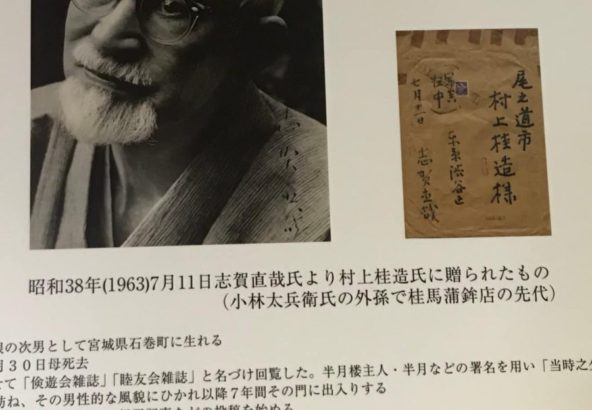 志賀直哉
尾之道市
村上桂造様
写真
在中
七月十一日
東京渋谷区
志賀直哉
昭和38年(1963)7月11日志賀直哉氏より村上桂造氏に贈られたもの
(小林太兵衛氏の外孫で桂馬蒲鉾店の先代)
の次男として宮城県石巻町に生れる
月30日母死去
せて「倹遊会雑誌」「睦友会雑誌」と名づけ回覧した。半月楼主人・半月などの署名を用い「当時之
訪ね、その男性的な風貌にひかれ以降7年間その門に出入りする
などの投稿を始める